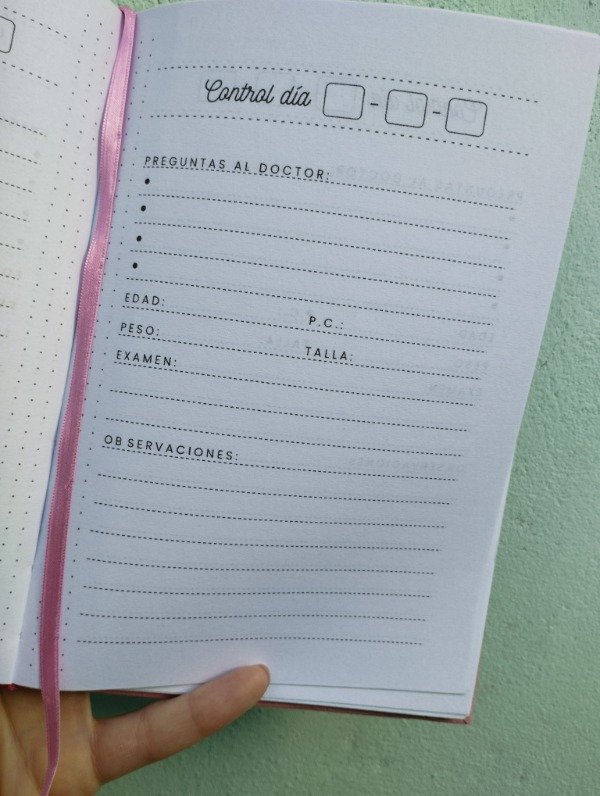 Control día - -
PREGUNTAS AL DOCTOR:
•
•
•
•
EDAD: P.C.:
PESO: TALLA:
EXAMEN:
OBSERVACIONES: